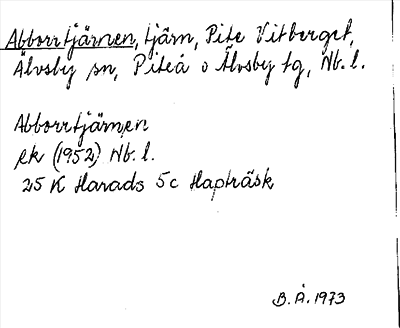 Abborrtjärnen, tjärn, Pite Vitberget,
Älvsby sn, Piteå o Älvsby tg, Nb. l.
Abborrtjärnen
ek (1952) Nb. l.
25 K Harads 5c Hapträsk
B. Å. 1973